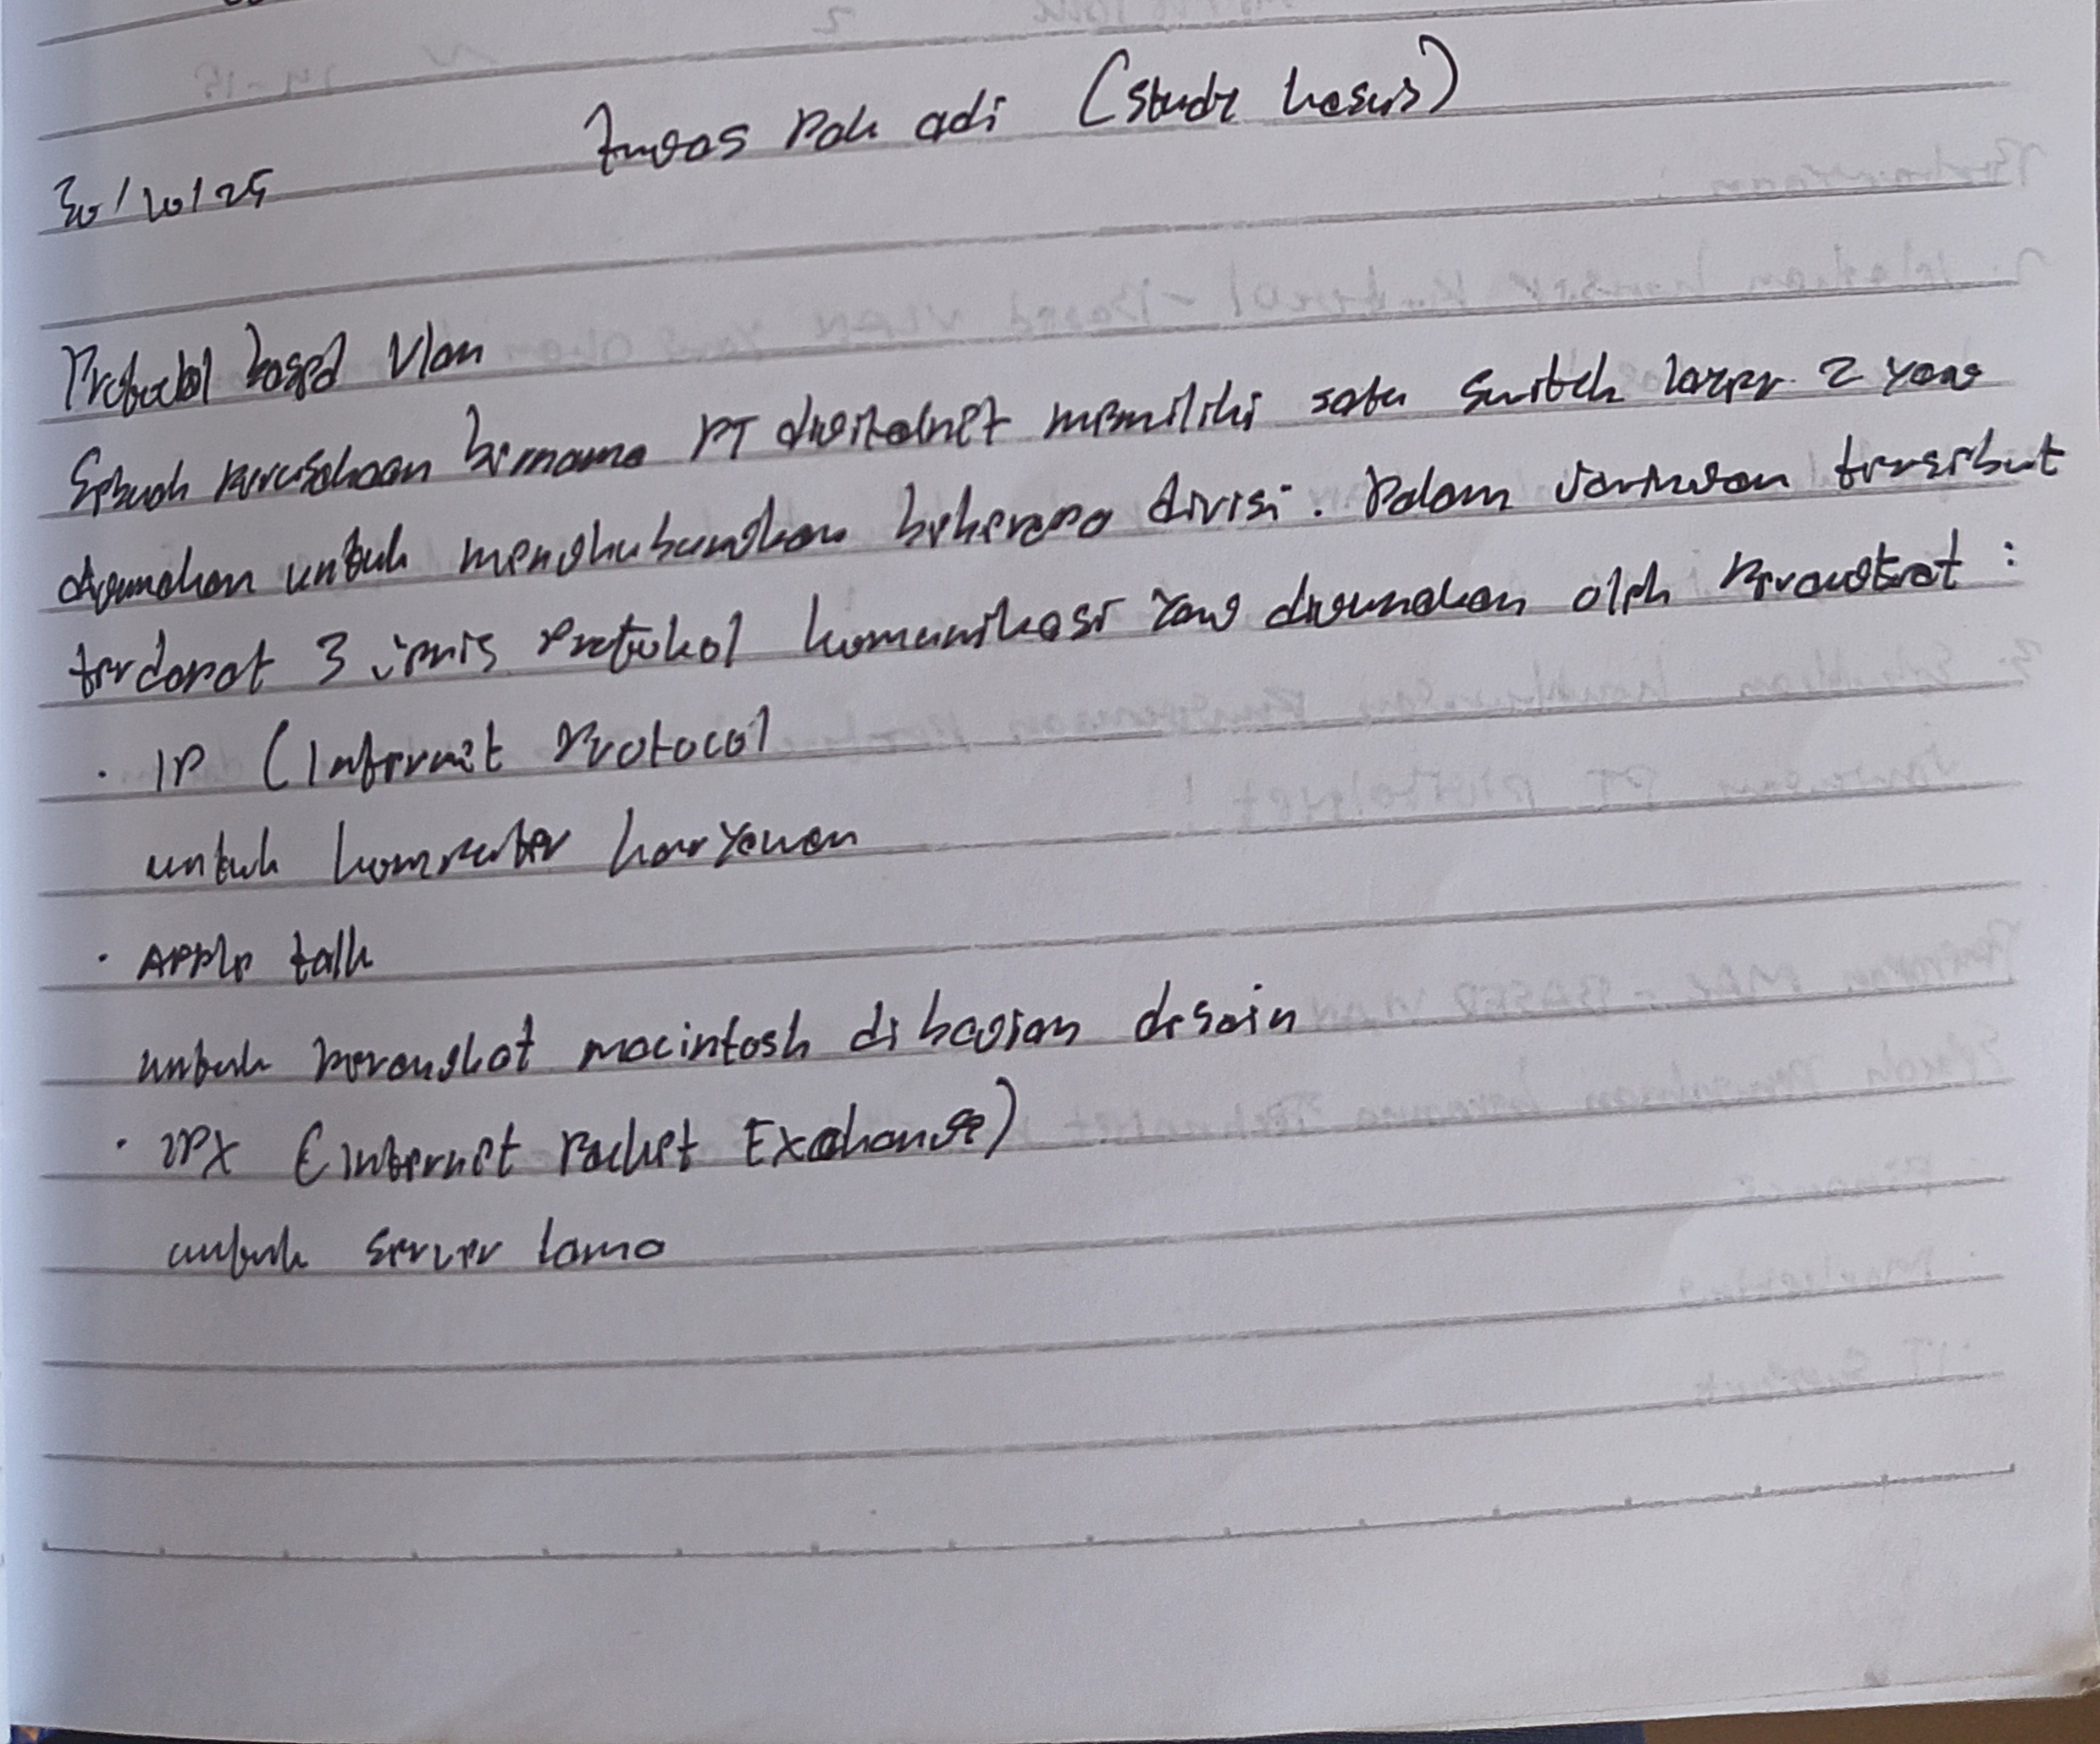 Tugas Pak adi (Studi kasus)
30/10/25
Protocol based Vlan
Sebuah perusahaan bernama PT digitalnet memiliki satu Switch layer 2 yang
digunakan untuk menghubungkan beberapa divisi. Dalam jaringan tersebut
terdapat 3 jenis Protokol komunikasi yang digunakan oleh Perangkat :
· IP (Internet Protocol
untuk komputer karyawan
· Apple talk
untuk perangkat macintosh di bagian desain
· IPX (internet Packet Exchange)
untuk server lama